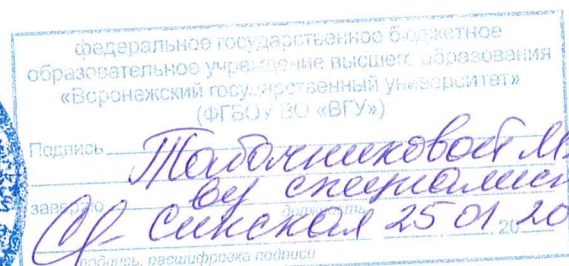 федеральное государственное бюджетное
образовательное учреждение высшего образования
«Воронежский государственный университет»
(ФГБОУ ВО «ВГУ»)
Подпись Табачниковой М.
заверяю ву специалист
должность
Синская 25 01 20 20
подпись, расшифровка подписи